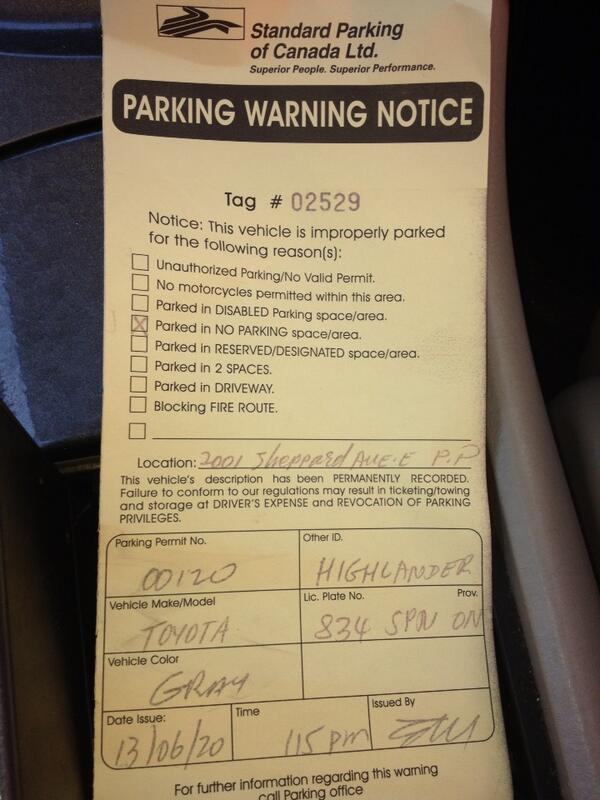 Standard Parking
of Canada Ltd.
Superior People. Superior Performance.
PARKING WARNING NOTICE
Tag # 02529
Notice: This vehicle is improperly parked
for the following reason(s):
Unauthorized Parking/No Valid Permit.
No motorcycles permitted within this area.
Parked in DISABLED Parking space/area.
X Parked in NO PARKING space/area.
Parked in RESERVED/DESIGNATED space/area.
Parked in 2 SPACES.
Parked in DRIVEWAY.
Blocking FIRE ROUTE.
Location: 2001 Sheppard AVE.E P.P
This vehicle's description has been PERMANENTLY RECORDED.
Failure to conform to our regulations may result in ticketing/towing
and storage at DRIVER'S EXPENSE and REVOCATION OF PARKING
PRIVILEGES.
Parking Permit No.
00120
Other ID.
HIGHLANDER
Vehicle Make/Model
TOYOTA
Lic. Plate No. Prov.
834 SPN ON
Vehicle Color
GRAY
Date Issue:
13/06/20
Time
115 pm
Issued By
For further information regarding this warning
call Parking office